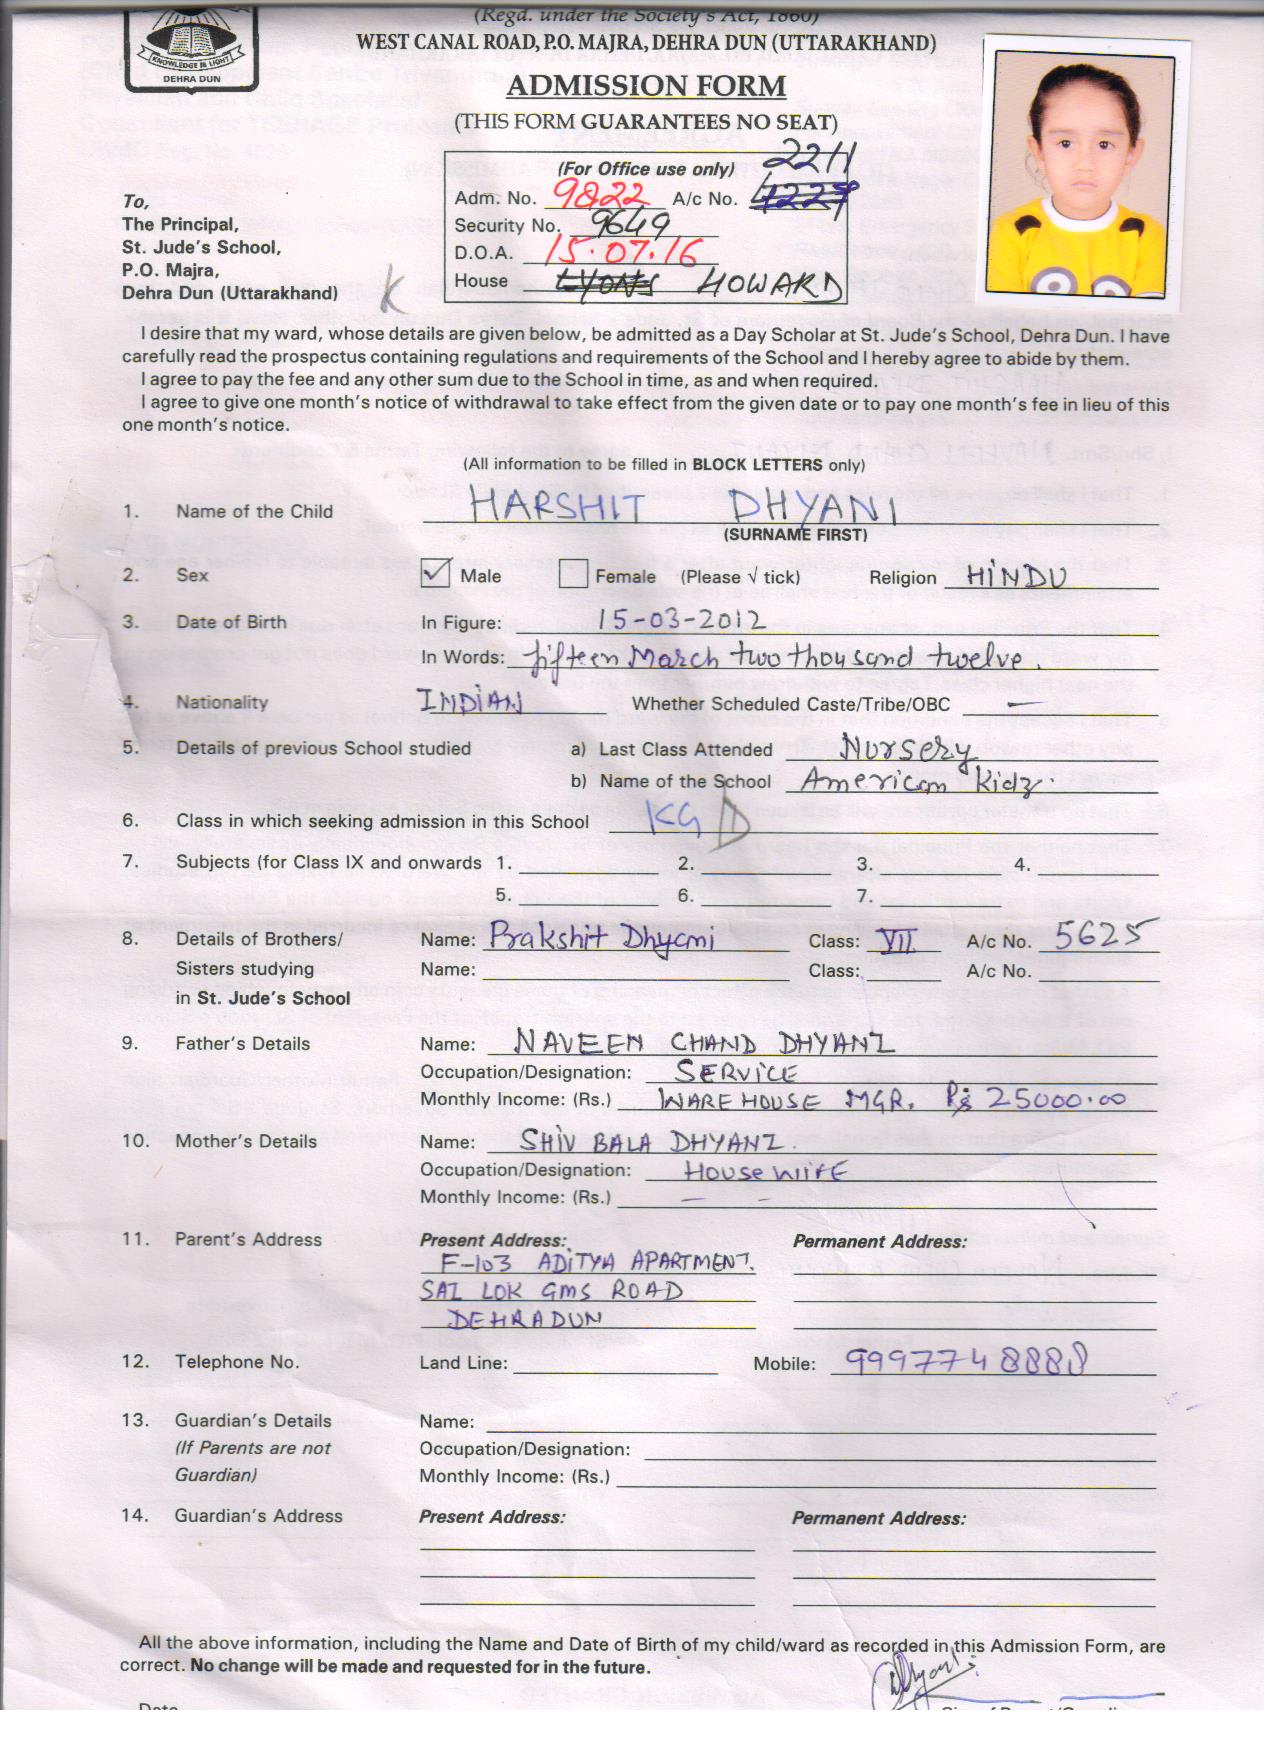 (Regd. under the Society's Act, 1860)
WEST CANAL ROAD, P.O. MAJRA, DEHRA DUN (UTTARAKHAND)
KNOWLEDGE IS LIGHT
DEHRA DUN
ADMISSION FORM
(THIS FORM GUARANTEES NO SEAT)
(For Office use only) 2211
Adm. No. 9822 A/c No.
Security No. 9649
D.O.A. 15.07.16
House LYONS HOWARD
To,
The Principal,
St. Jude's School,
P.O. Majra,
Dehra Dun (Uttarakhand)
K
I desire that my ward, whose details are given below, be admitted as a Day Scholar at St. Jude's School, Dehra Dun. I have
carefully read the prospectus containing regulations and requirements of the School and I hereby agree to abide by them.
I agree to pay the fee and any other sum due to the School in time, as and when required.
I agree to give one month's notice of withdrawal to take effect from the given date or to pay one month's fee in lieu of this
one month's notice.
(All information to be filled in BLOCK LETTERS only)
1. Name of the Child HARSHIT DHYANI
(SURNAME FIRST)
2. Sex Male Female (Please √ tick) Religion HINDU
3. Date of Birth In Figure: 15-03-2012
In Words: fifteen March two thousand twelve.
4. Nationality INDIAN Whether Scheduled Caste/Tribe/OBC —
5. Details of previous School studied a) Last Class Attended Nursery
b) Name of the School American Kidz.
6. Class in which seeking admission in this School KG D
7. Subjects (for Class IX and onwards 1. 2. 3. 4.
5. 6. 7.
8. Details of Brothers/ Name: Prakshit Dhyani Class: VII A/c No. 5625
Sisters studying Name: Class: A/c No.
in St. Jude's School
9. Father's Details Name: NAVEEN CHAND DHYANI
Occupation/Designation: SERVICE
Monthly Income: (Rs.) WAREHOUSE MGR. Rs 25000.00
10. Mother's Details Name: SHIV BALA DHYANI.
Occupation/Designation: HOUSE WIFE
Monthly Income: (Rs.) — —
11. Parent's Address Present Address: Permanent Address:
F-103 ADITYA APARTMENT.
SAI LOK GMS ROAD
DEHRADUN
12. Telephone No. Land Line: Mobile: 9997748888
13. Guardian's Details Name:
(If Parents are not Occupation/Designation:
Guardian) Monthly Income: (Rs.)
14. Guardian's Address Present Address: Permanent Address:
All the above information, including the Name and Date of Birth of my child/ward as recorded in this Admission Form, are
correct. No change will be made and requested for in the future.